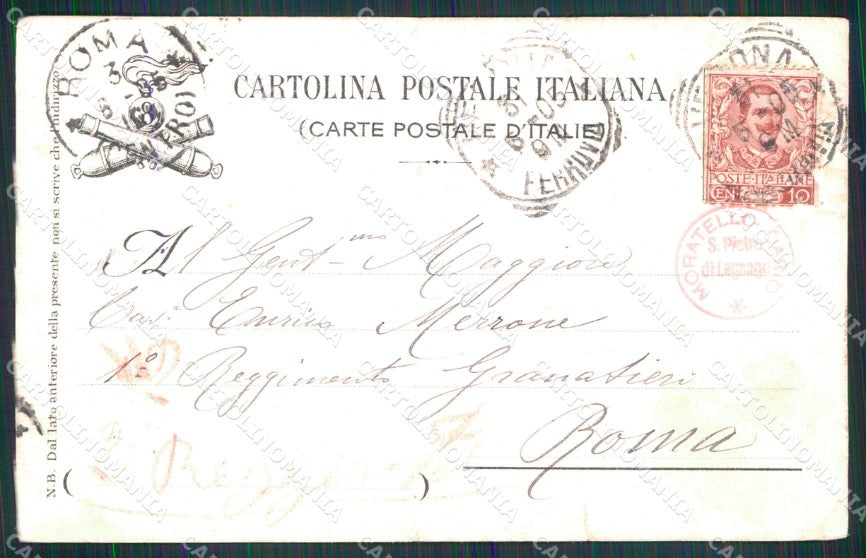 CARTOLINA POSTALE ITALIANA
(CARTE POSTALE D'ITALIE)
N.B. Dal lato anteriore della presente non si scrive che l'indirizzo
ROMA
VERONA
FERROVIA
POSTE ITALIANE
CENT. 10
MORATELLO
S. Pietro
di Legnago
Al Gent.mo Maggiore
Cav. Enrico Merrone
1º Reggimento Granatieri
Roma
CARTOLINOMANIA